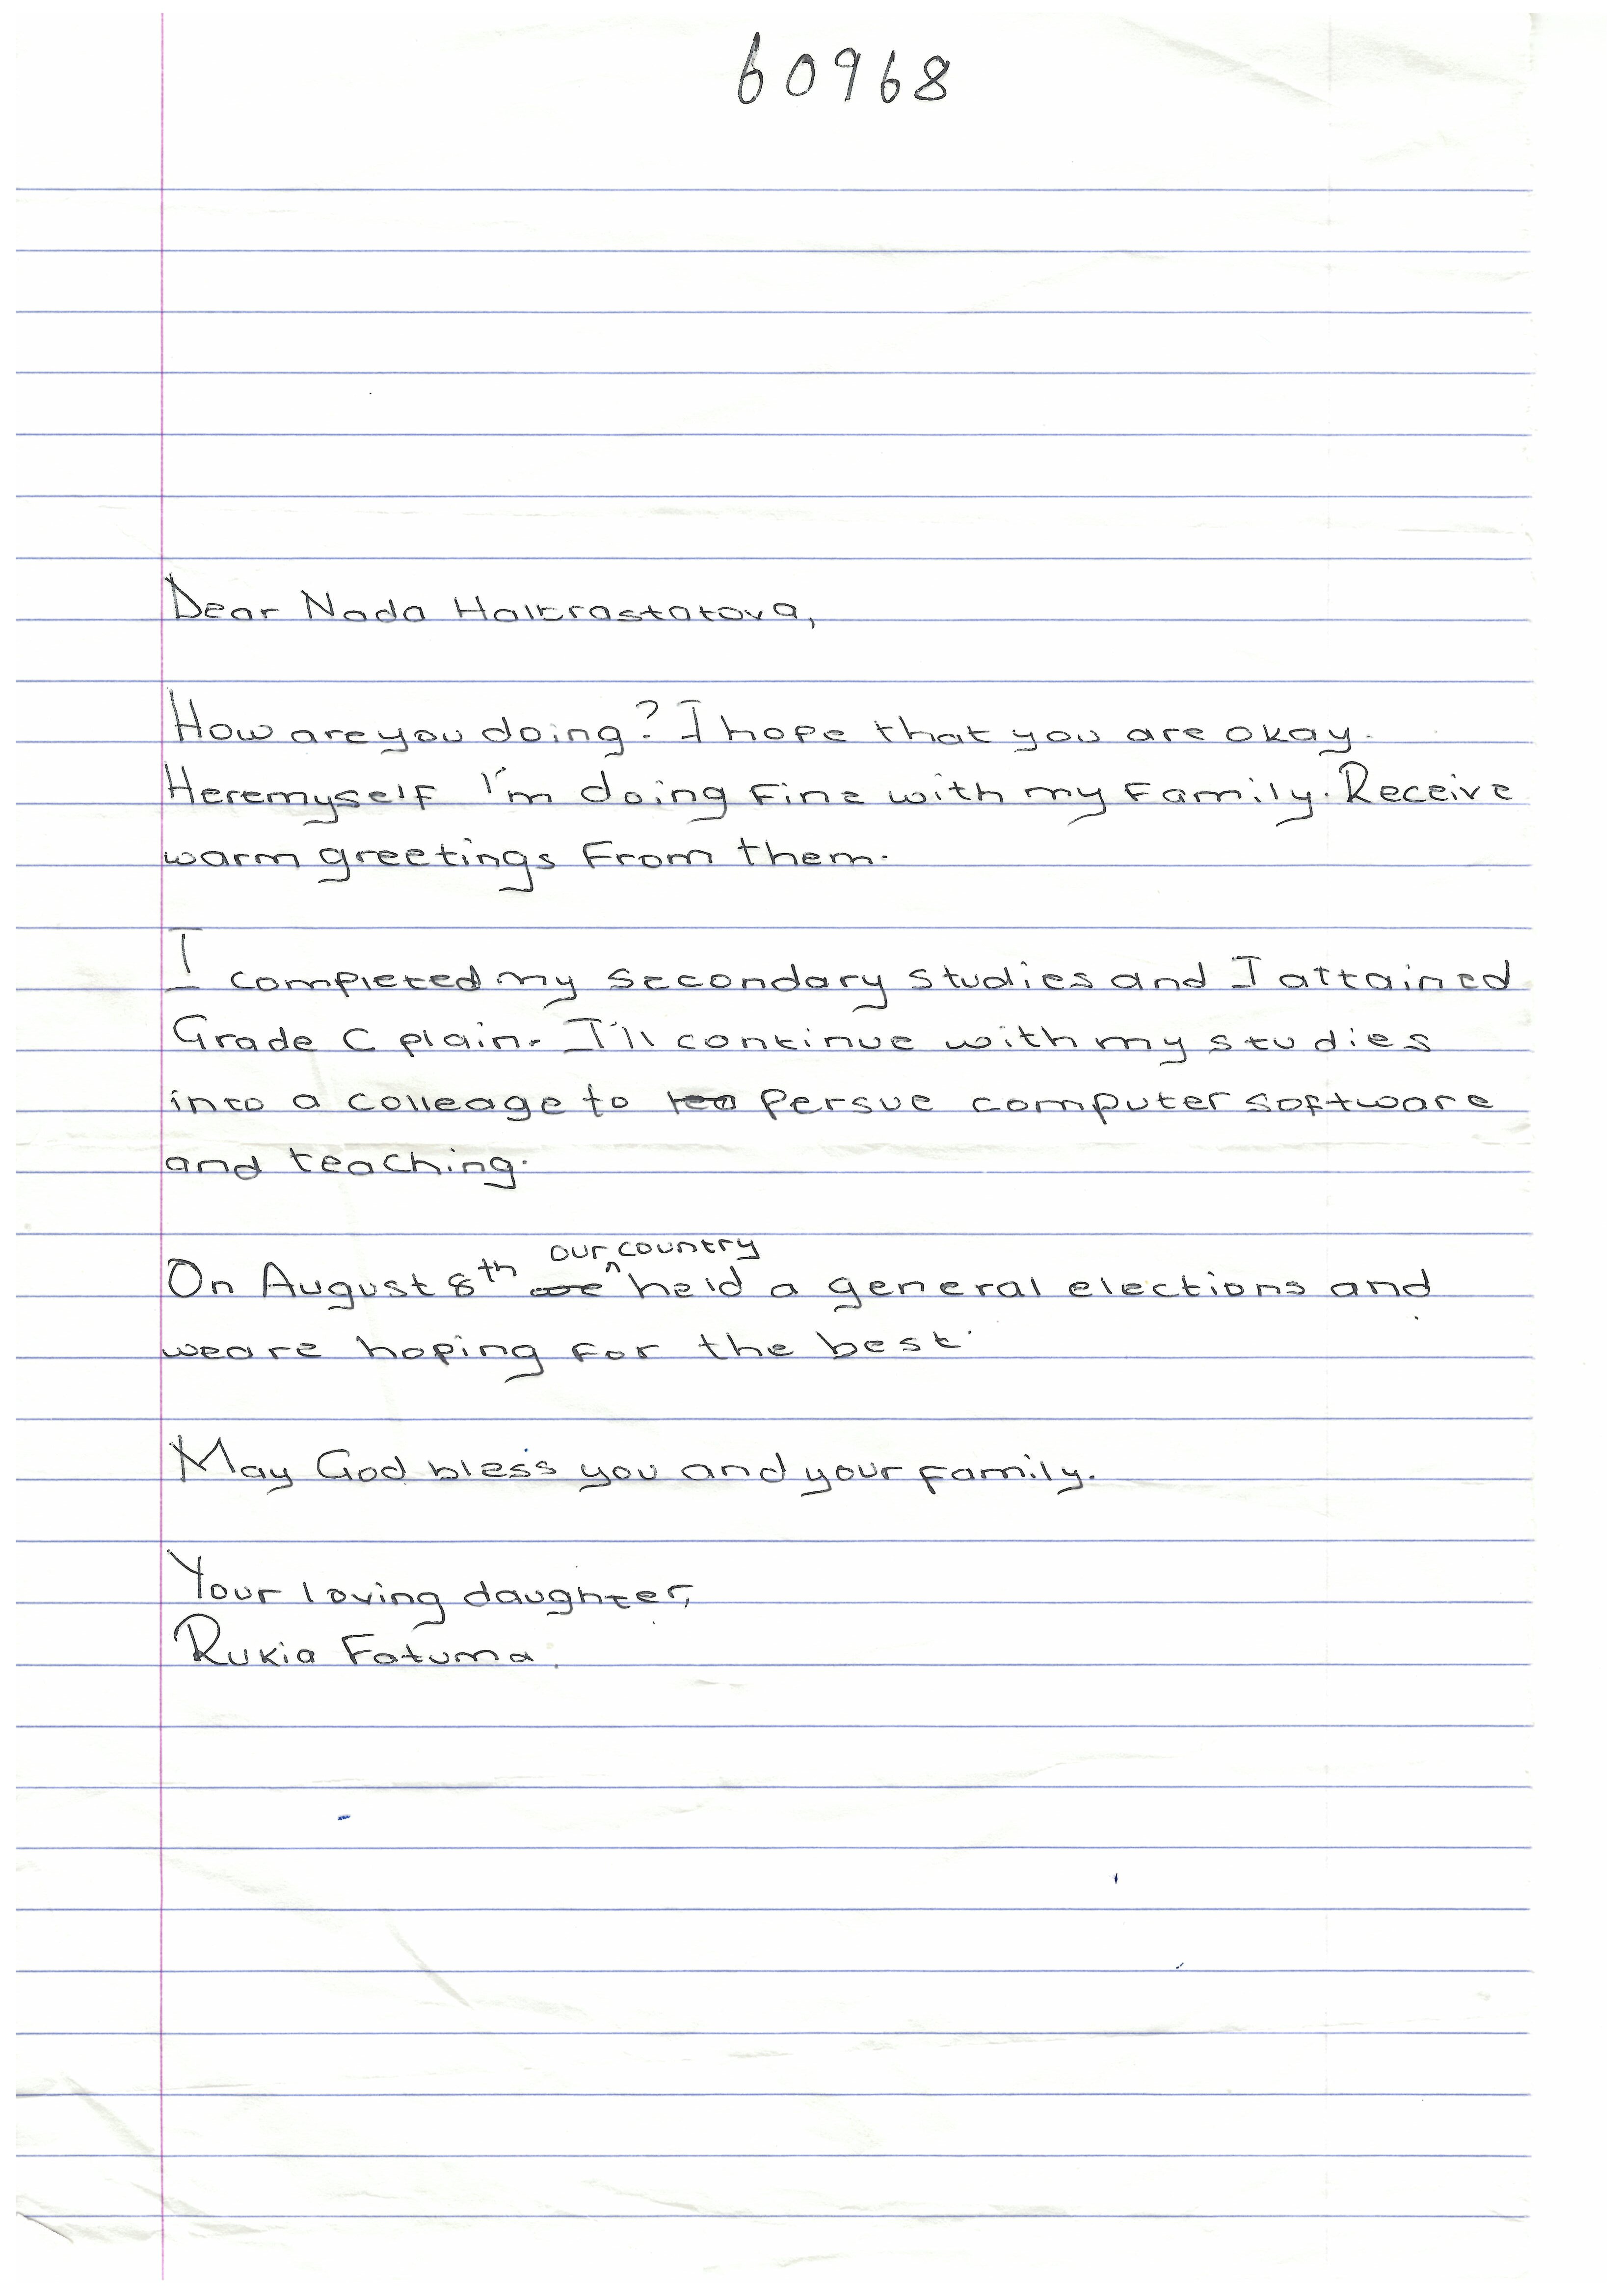 60968
Dear Nada Halkrastatova,
How are you doing? I hope that you are okay.
Here myself I'm doing fine with my family. Receive
warm greetings from them.
I completed my secondary studies and I attained
Grade C plain. I'll continue with my studies
into a colleage to persue computer software
and teaching.
On August 8th our country held a general elections and
we are hoping for the best.
May God bless you and your family.
Your loving daughter,
Rukia Fatuma.